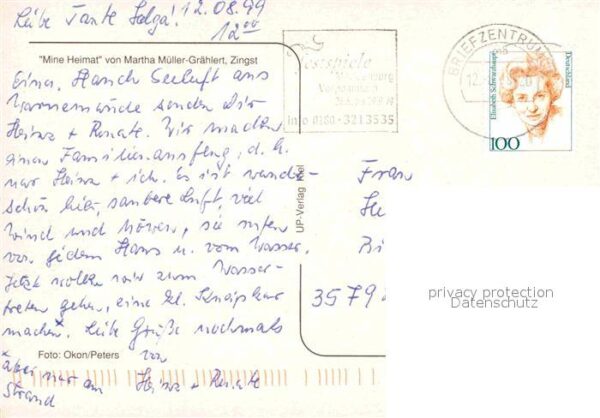 Liebe Tante Helga! 12.08.99
12 00
"Mine Heimat" von Martha Müller-Grählert, Zingst
Einen Hauch Seeluft aus
Warnemünde senden Dir
Heinz + Renate. Wir machen
einen Familienausflug, d. h.
nur Heinz + ich. Es ist wunder-
schön hier, saubere Luft, viel
Wind und Möwen, sie rufen
von jedem Haus u. vom Wasser.
Jetzt wollen wir zum Wasser-
treten gehen, eine kl. Kneippkur
machen*. Liebe Grüße nochmals
von
Heinz + Renate
* aber nur am
Strand
Foto: Okon/Peters
UP-Verlag Kiel
Festspiele
Mecklenburg
Vorpommern
Info 0180 - 3213535
BRIEFZENTRUM
12.
Elisabeth Schwarzhaupt
Deutschland
100
Frau
3579
privacy protection
Datenschutz